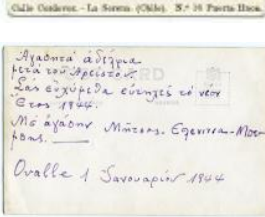 Calle Cordovez. - La Serena. (Chile). N.º 26 Puerta Huca.
Ἀγαπητὰ ἀδέλφια
μετὰ τοῦ Ἀρείστου.
Σᾶς εὐχόμεθα εὐτηχὲς τὸ νέον
ἔτος 1944.
Μὲ ἀγάπην Μῆτσος. Ἐλενιτσα
CARD
Ovalle 1 Ιανουαρίου 1944